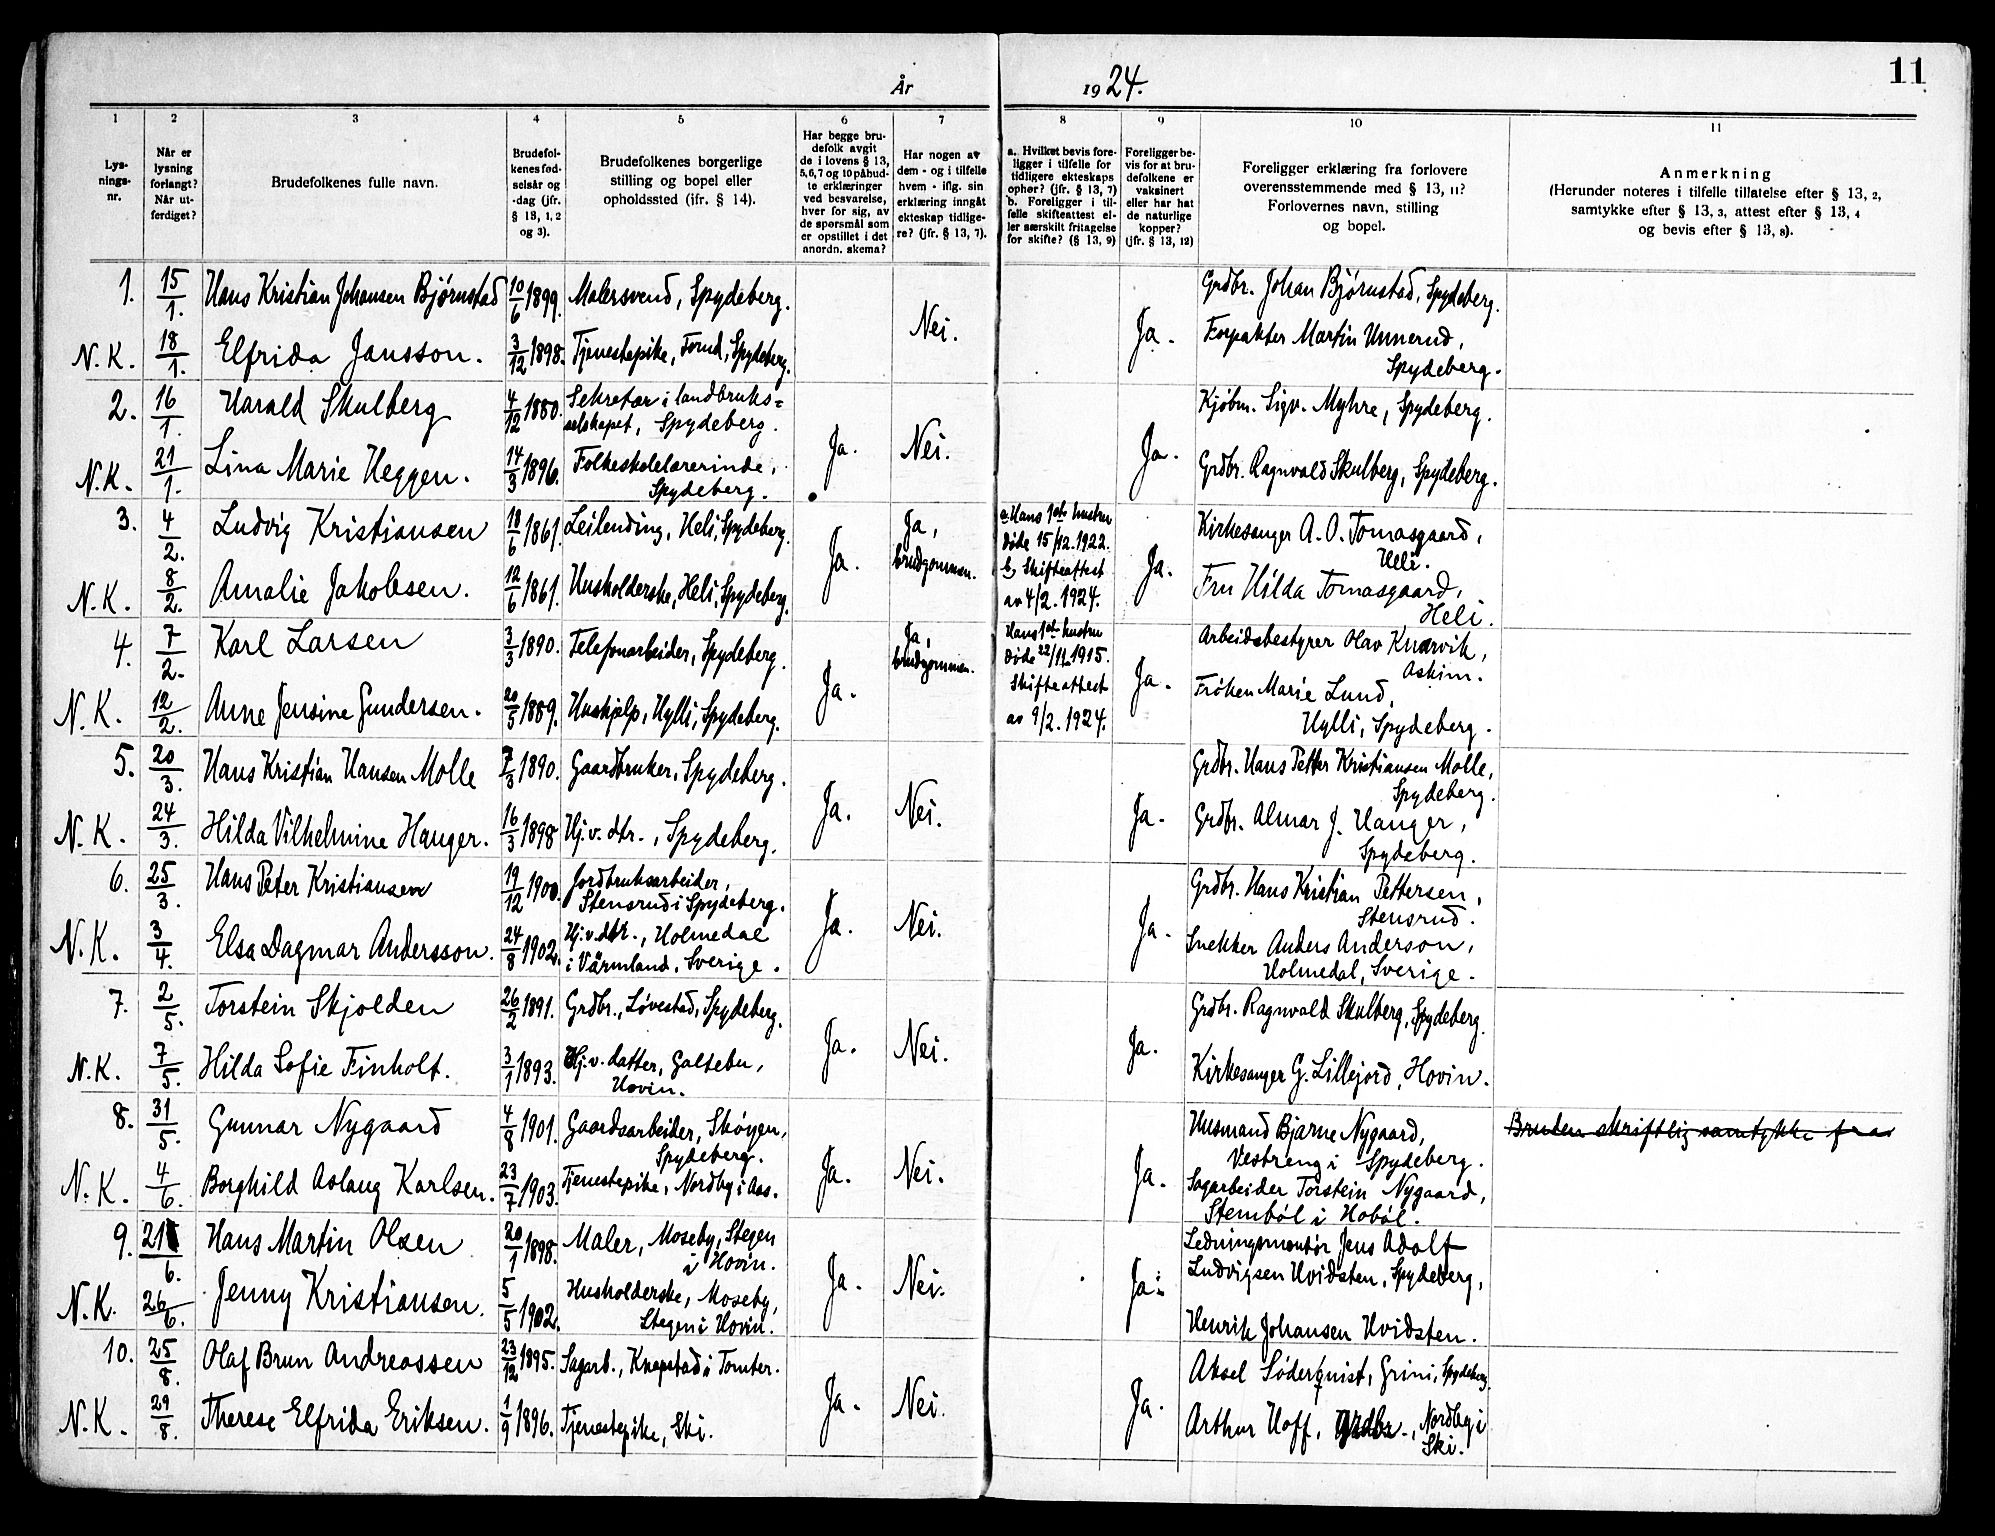 11
År 1924.
1
2
3
4
5
6
7
8
9
10
11
Lys-
nings-
nr.
Når er
lysning
forlangt?
Når ut-
ferdiget?
Brudefolkenes fulle navn.
Brudefol-
kenes fød-
selsår og
-dag (jfr.
§ 13, 1, 2
og 3).
Brudefolkenes borgerlige
stilling og bopel eller
opholdssted (ifr. § 14).
Har begge bru-
defolk avgit
de i lovens § 13,
5,6,7 og 10 påbud-
te erklæringer
ved besvarelse,
hver for sig, av
de spørsmål som
er opstillet i det
anordn. skema?
Har nogen av
dem - og i tilfelle
hvem - iflg. sin
erklæring inngåt
ekteskap tidlige-
re? (jfr. § 13, 7).
a. Hvilket bevis fore-
ligger i tilfelle for
tidligere ekteskaps
ophør? (jfr. § 13, 7)
b. Foreligger i til-
felle skifteattest el-
ler særskilt fritagelse
for skifte? (§ 13, 9)
Foreligger be-
vis for at bru-
defolkene er
vaksinert
eller har hat
de naturlige
kopper?
(jfr. § 13, 12)
Foreligger erklæring fra forlovere
overensstemmende med § 13, 11?
Forlovernes navn, stilling
og bopel.
Anmerkning
(Herunder noteres i tilfelle tillatelse efter § 13, 2,
samtykke efter § 13, 3, attest efter § 13, 4
og bevis efter § 13, 8).
1. 15/1. Hans Kristian Johansen Bjørnstad 10/6 1899. Malersvend, Spydeberg.
Nei. Ja.
Grdbr. Johan Bjørnstad, Spydeberg.
N.K. 18/1. Elfrida Jansson. 3/12 1898. Tjenestepike, Spydeberg.
Forpakter Martin Unnerud,
Spydeberg.
2. 16/1. Harald Skulberg 4/12 1880. Sekretær i landbruks=
selskapet, Spydeberg.
Ja. Nei. Ja.
Kjøbm. Sigv. Myhre, Spydeberg.
N.K. 21/1. Lina Marie Heggen. 14/3 1896. Folkeskolelærerinde,
Spydeberg.
Grdbr. Ragnvald Skulberg, Spydeberg.
3. 4/2. Ludvig Kristiansen 18/6 1861. Leilending, Heli, Spydeberg.
Ja. Ja,
brudgommen.
a. Hans 1ste hustru
døde 15/12. 1922.
b. Skifteattest
av 4/2. 1924.
Ja.
Kirkesanger A. O. Tomasgaard,
Heli.
N.K. 8/2. Amalie Jakobsen. 12/6 1861. Husholderske, Heli, Spydeberg.
Fru Hilda Tomasgaard,
Heli.
4. 7/2. Karl Larsen 3/3 1890. Telefonarbeider, Spydeberg.
Ja. Ja,
brudgommen.
Hans 1ste hustru
døde 22/11. 1915.
Skifteattest
av 9/2. 1924.
Ja.
Arbeidsbestyrer Olav Knarvik,
Askim.
N.K. 12/2. Anne Jensine Gundersen. 20/5 1889. Hushjelp, Hylli, Spydeberg.
Frøken Marie Lund,
Hylli, Spydeberg.
5. 20/3. Hans Kristian Hansen Molle 7/3 1890. Gaardbruker, Spydeberg.
Ja. Nei. Ja.
Grdbr. Hans Petter Kristiansen Molle,
Spydeberg.
N.K. 24/3. Hilda Vilhelmine Hanger. 16/3 1898 Hj.v. dtr., Spydeberg.
Grdbr. Almar J. Hanger,
Spydeberg.
6. 25/3. Hans Peter Kristiansen 19/12 1900. Jordbruksarbeider,
Stensrud i Spydeberg.
Ja. Nei. Ja.
Grdbr. Hans Kristian Pettersen,
Stensrud.
N.K. 3/4. Elsa Dagmar Andersson. 24/8 1902. Hj.v. dtr., Holmedal
i Värmland, Sverige.
Snekker Anders Anderson,
Holmedal, Sverige.
7. 2/5. Torstein Skjolden 26/2 1891. Grdbr., Løvestad, Spydeberg.
Ja. Nei. Ja.
Grdbr. Ragnvald Skulberg, Spydeberg.
N.K. 7/5. Hilda Sofie Finholt. 3/1 1893. Hj.v. datter, Galtebu,
Hovin.
Kirkesanger G. Lillejord, Hovin.
8. 31/5. Gunnar Nygaard 4/8 1901. Gaardsarbeider, Skøyen,
Spydeberg.
Ja. Nei. Ja.
Husmand Bjarne Nygaard,
Vestreng i Spydeberg.
Bruden skriftlig samtykke fra
N.K. 4/6. Borghild Aslaug Karlsen. 23/7 1903. Tjenestepike, Nordby i Aas.
Sagarbeider Torstein Nygaard,
Stenbøl i Hobøl.
9. 21/6. Hans Martin Olsen 20/1 1898. Maler, Moseby, Stegen
i Hovin.
Ja. Nei. Ja.
Ledningsmontør Jens Adolf
Ludvigsen Hvidsten, Spydeberg,
N.K. 26/6. Jenny Kristiansen. 5/5 1902. Husholderske, Moseby,
Stegen i Hovin.
Henrik Johansen Hvidsten.
10. 25/8. Olaf Brun Andreassen 23/12 1895. Sagarb., Knapstad i Tomter.
Ja. Nei. Ja.
Aksel Søderquist, Grini, Spydeberg.
N.K. 29/8. Therese Elfrida Eriksen. 1/9 1896. Tjenestepike, Ski.
Arthur Hoff, Grdbr., Nordby i
Ski.